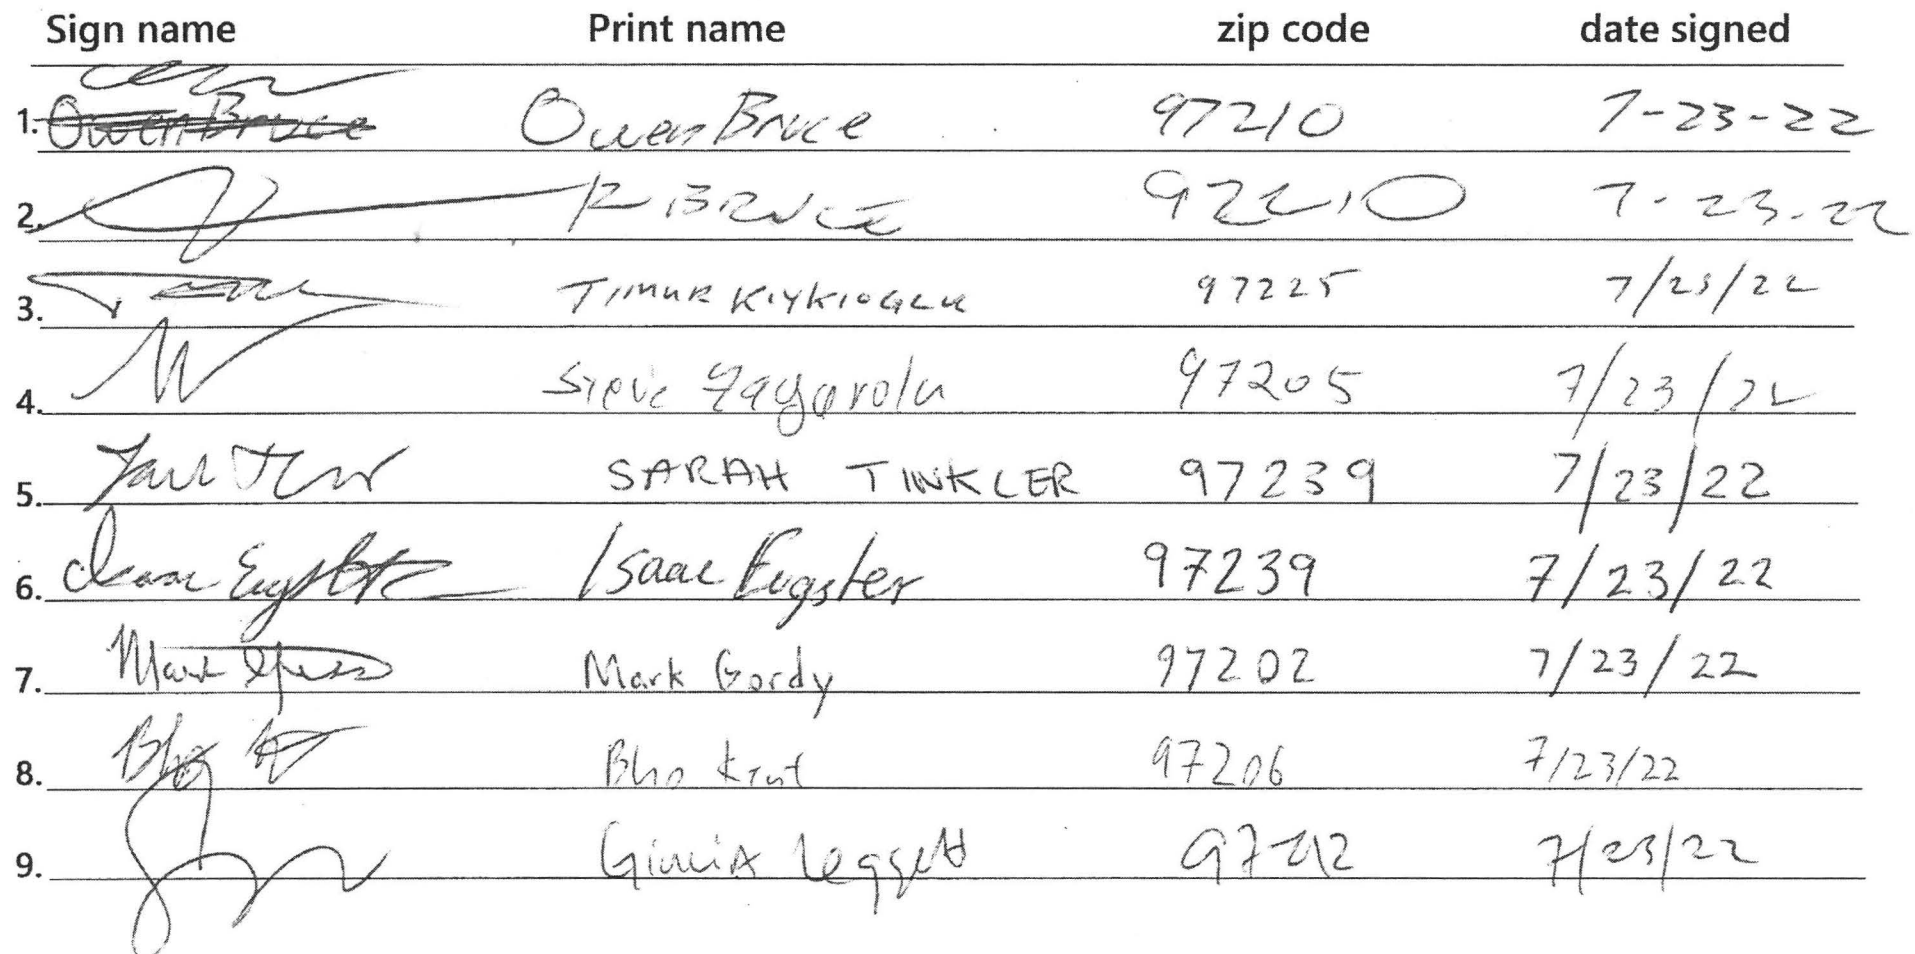 Sign name Print name zip code date signed
1. Owen Bruce Owen Bruce 97210 7-23-22
2. R BRUCE 97210 7-23-22
3. TIMUR KIYKIOGLU 97225 7/23/22
4. Steve Zagarola 97205 7/23/22
5. SARAH TINKLER 97239 7/23/22
6. Isaac Eugster Isaac Eugster 97239 7/23/22
7. Mark Mark Gordy 97202 7/23/22
8. Bho Bho 97206 7/23/22
9. Leggett 7/23/22